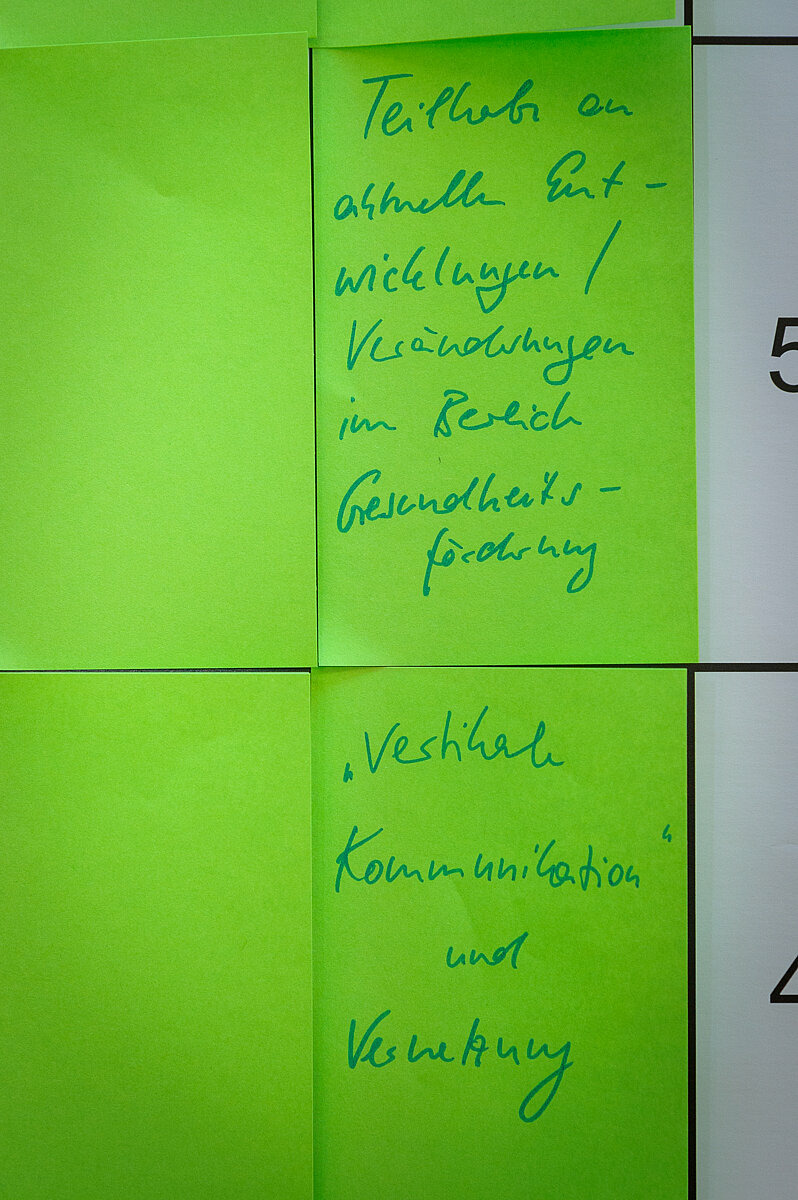 Teilhabe an
aktuellen Ent-
wicklungen /
Veränderungen
im Bereich
Gesundheits-
förderung
5
„Vertikale
Kommunikation“
und
Vernetzung
4